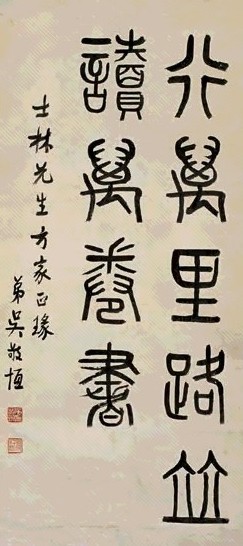 行萬里路竝
讀萬卷書
士林先生方家正篆
弟吳敬恆